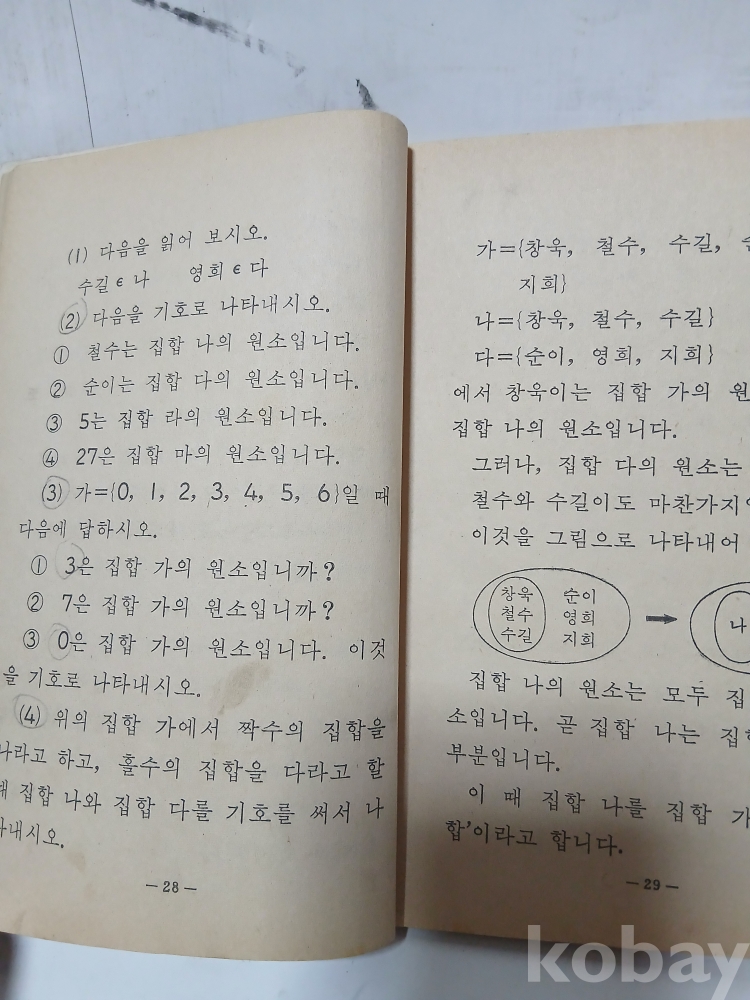 (1) 다음을 읽어 보시오.
수길 ϵ 나 영희 ϵ 다
(2) 다음을 기호로 나타내시오.
① 철수는 집합 나의 원소입니다.
② 순이는 집합 다의 원소입니다.
③ 5는 집합 라의 원소입니다.
④ 27은 집합 마의 원소입니다.
(3) 가={0, 1, 2, 3, 4, 5, 6}일 때
다음에 답하시오.
① 3은 집합 가의 원소입니까?
② 7은 집합 가의 원소입니까?
③ 0은 집합 가의 원소입니다. 이것
을 기호로 나타내시오.
(4) 위의 집합 가에서 짝수의 집합을
나라고 하고, 홀수의 집합을 다라고 할
때 집합 나와 집합 다를 기호를 써서 나
타내시오.
— 28 —
가={창욱, 철수, 수길,
지희}
나={창욱, 철수, 수길}
다={순이, 영희, 지희}
에서 창욱이는 집합 가의 원
집합 나의 원소입니다.
그러나, 집합 다의 원소는
철수와 수길이도 마찬가지
이것을 그림으로 나타내어
창욱 순이
철수 영희 → 나
수길 지희
집합 나의 원소는 모두 집
소입니다. 곧 집합 나는 집
부분입니다.
이 때 집합 나를 집합 가
합'이라고 합니다.
— 29 —
kobay